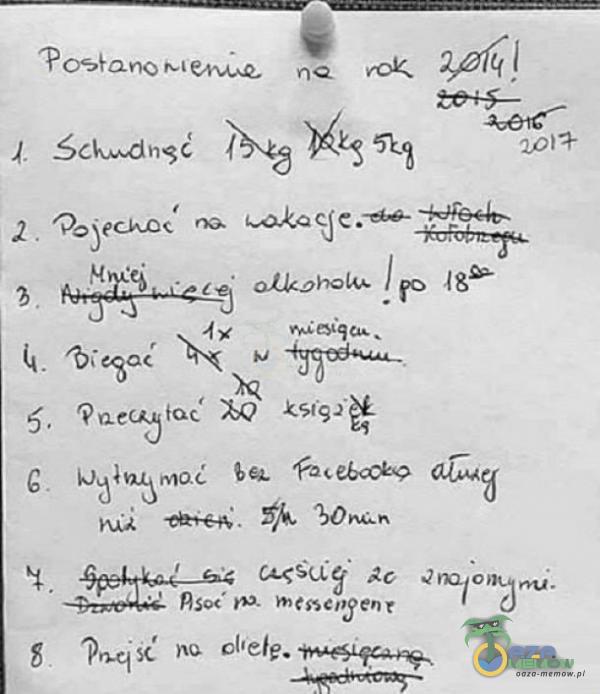 Postanowienia na rok 2014!
2015
2016
2017
1. Schudnąć 15kg 10kg 5kg
2. Pojechać na wakacje. do Włoch
Kołobrzegu
Mniej
3. Nigdy więcej alkoholu! po 18⁰⁰
1x miesiącu.
4. Biegać 4x w tygodniu.
10
5. Przeczytać 20 książek
kę
6. Wytrzymać bez Facebooka dłużej
niż dzień. 5h 30min
7. Spotykać się częściej ze znajomymi.
Dzwonić Pisać na messengerze
8. Przejść na dietę. miesięczną.
tygodniową
oaza
memów
oaza-memow.pl